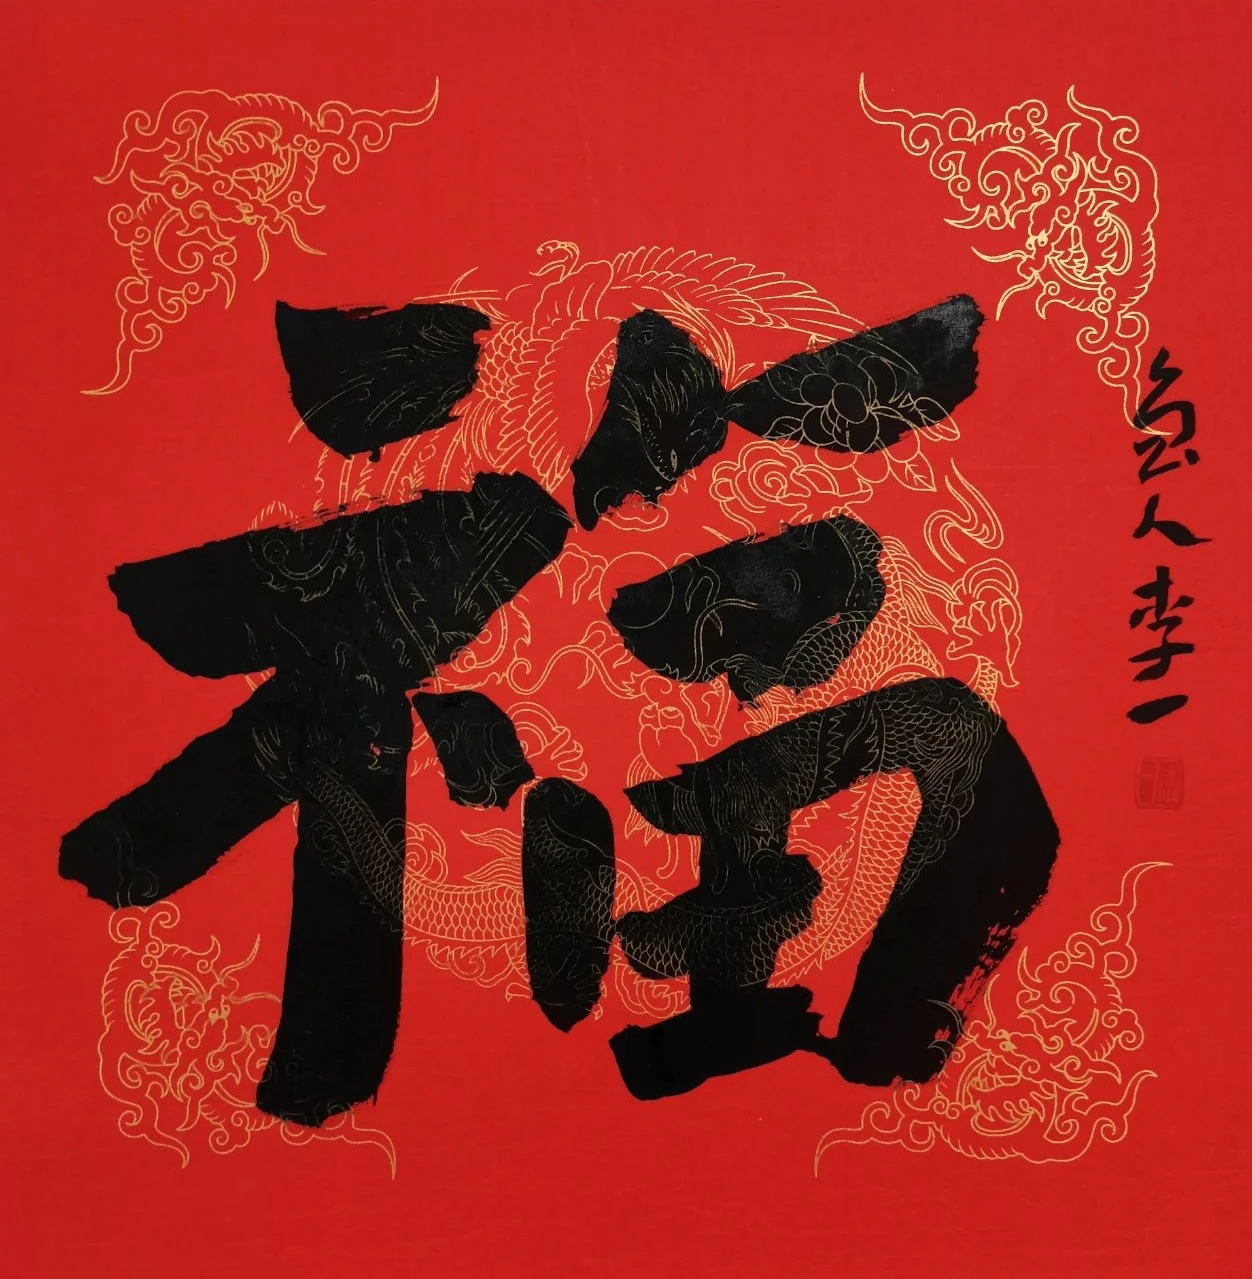 福
人李一